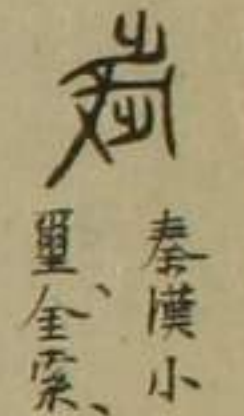 秦漢小
璽、金索、